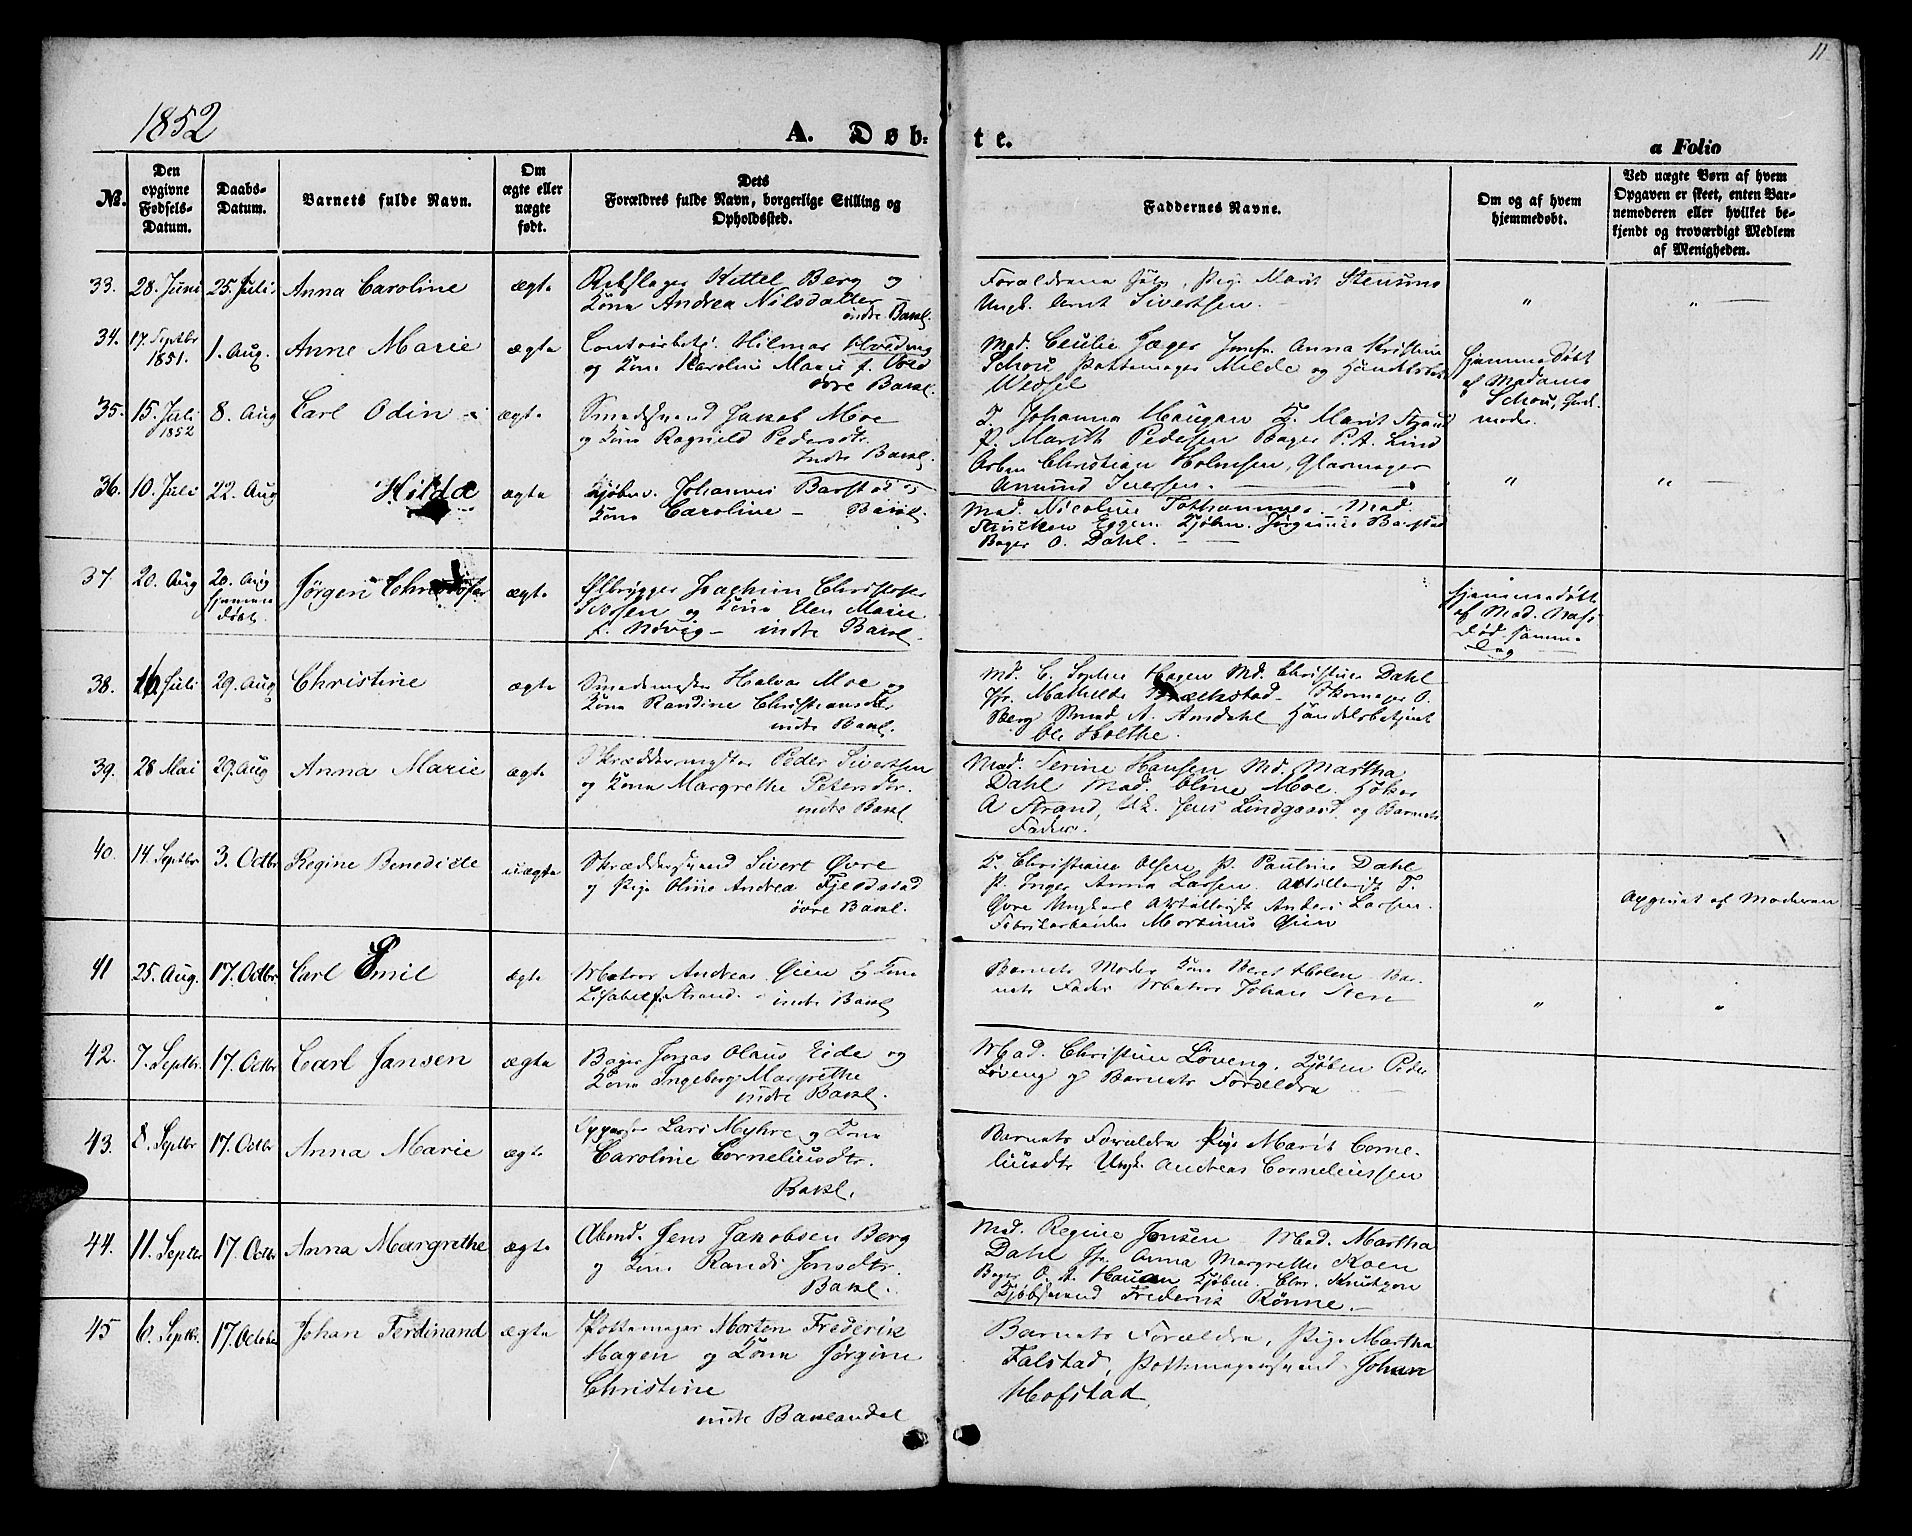 11
1852
A. Døb-
te.
a Folio
No.
Den opgivne Fødsels-Datum.
Daabs-Datum.
Barnets fulde Navn.
Om ægte eller uægte født.
Dets Forældres fulde Navn, borgerlige Stilling og Opholdssted.
Faddernes Navne.
Om og af hvem hjemmedøbt.
Ved uægte Børn af hvem Opgaven er skeet, enten Barnemoderen eller hvilket bekjendt og troværdigt Medlem af Menigheden.
33. 28. Juni 25. Juli Anna Caroline ægte
Kittel Berg og
Kone Andrea Nilsdatter
indre Bakl.
Forældrene Pige Marit
Ungk. Arnt Sivertsen.
34. 17. Septbr 1851. 1. Aug. Anne Marie ægte
Hilmar
og Kone Karoline Marie f.
øvre Bakl.
Mad. Cecilie Jæger Jomfr. Anna Kristine
Schou Pottemager Milde og
Wessel
Hjemmedøbt
af Madame
Schou,
35. 15. Juli 1852 8. Aug Carl Odin ægte
Smedsvend Jakob Moe
og Kone Ragnild Pedersdtr.
Indre Bakl.
K. Johanna Haugan K. Marit
P. Marith Pedersen Bager P. A. Lind
Christian Holmsen, Glarmager
Amund Iversen.
36. 10. Juli 22. Aug Hilda ægte
Kjøbm. Johannes Barstad og
Kone Caroline - Bakl.
Mad. Nicoline Mad.
Eggen. Kjøbm. Jørginus Barstad
Bager O. Dahl.
37. 20. Aug 20. Aug Hjemmedøbt Jørgen Christofer ægte
Ølbrygger Joachim Christofer
Iversen og Kone Elen Marie
f. Høvig - indre Bakl.
Hjemmedøbt
af Mad.
Død samme
Dag
38. 16 Juli 29. Aug Christine ægte
Smedemester Halvor Moe og
Kone Randine Christiansdtr
indre Bakl.
Md. C. Sophie Hagen Md. Christine Dahl
Jfr. Mathilde Brækstad - Skomager O.
Berg A. Amdahl Handelsbetjent
Ole Holthe.
39. 28 Mai 29. Aug Anna Marie ægte
Skræddermester Peder Sivertsen
og Kone Margrethe Petersdtr.
indre Bakl
Mad. Serine Hansen Md. Martha
Dahl Mad. Oline Moe. Høker
A Strand, Uk. Jens Lindgaard, og Barnets
Fader.
40. 14. Septbr 3. Octbr Regine Benedicte uægte
Skræddersvend Sivert Øvre
og Pige Oline Andrea Fjeldstad
øvre Bakl.
K. Christiane Olsen P. Pauline Dahl
P. Inger Anna Larsen. Artillerist T.
Øvre Ungkarl Artillerist Anders Larsen.
Fabrikarbeider Mortinus Øien
Opgivet af Moderen
41 25. Aug. 17. Octbr Carl Emil ægte
Matros Andreas Øien og Kone
Lisabet f. Strand. - indre Bakl
Barnets Moder Kone Beret Holen Bar-
nets Fader Matros Johan Sten
42. 7. Septbr. 17. Octbr Carl Jansen ægte
Bager Olaus Eide og
Kone Ingeborg Margrethe
indre Bakl.
Mad. Christine Løveng. Kjøbm Peder
Løveng og Barnets Forældre
43. 8. Septbr 17. Octbr Anna Marie ægte
Lars Myhre og Kone
Caroline Corneliusdtr.
Bakl.
Barnets Forældre Pige Marit Corne-
liusdtr Ungk. Andreas Corneliussen
44. 11. Septbr 17. Octbr Anna Margrethe ægte
Arbmd. Jens Jakobsen Berg
og Kone Randi Jonsdtr.
Bakl.
Mad. Regine Jensen Mad. Martha
Dahl Jfr. Anna Margrethe Koen
Bager O. A. Hauan Kjøbm. Chr. Knutzon
Kjøbsvend Frederik Rønne.
45 6. Septbr. 17. October Johan Ferdinand ægte
Pottemager Morten Frederik
Hagen og Kone Jørgine
Christine
indre Baklandet
Barnets Forældre, Pige Martha
Falstad, Pottemagersvend Johan
Hofstad.